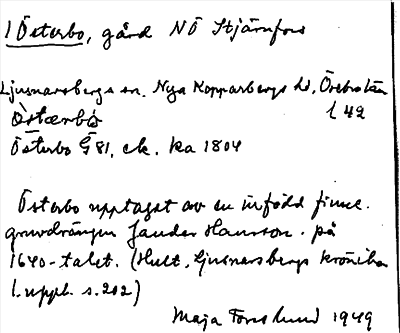 1 Österbo, gård NÖ Stjärnfors
Ljusnarsbergs sn. Nya Kopparbergs hd, Örebro län
Östærbo
l 42
Österbo G 81, ek. ka 1804
Österbo upptaget av en infödd finne.
gruvdrängen Jander Hansson. på
1640-talet. (Hult, Ljusnarsbergs krönika
1. uppl. s. 202)
Maja Forslund 1949